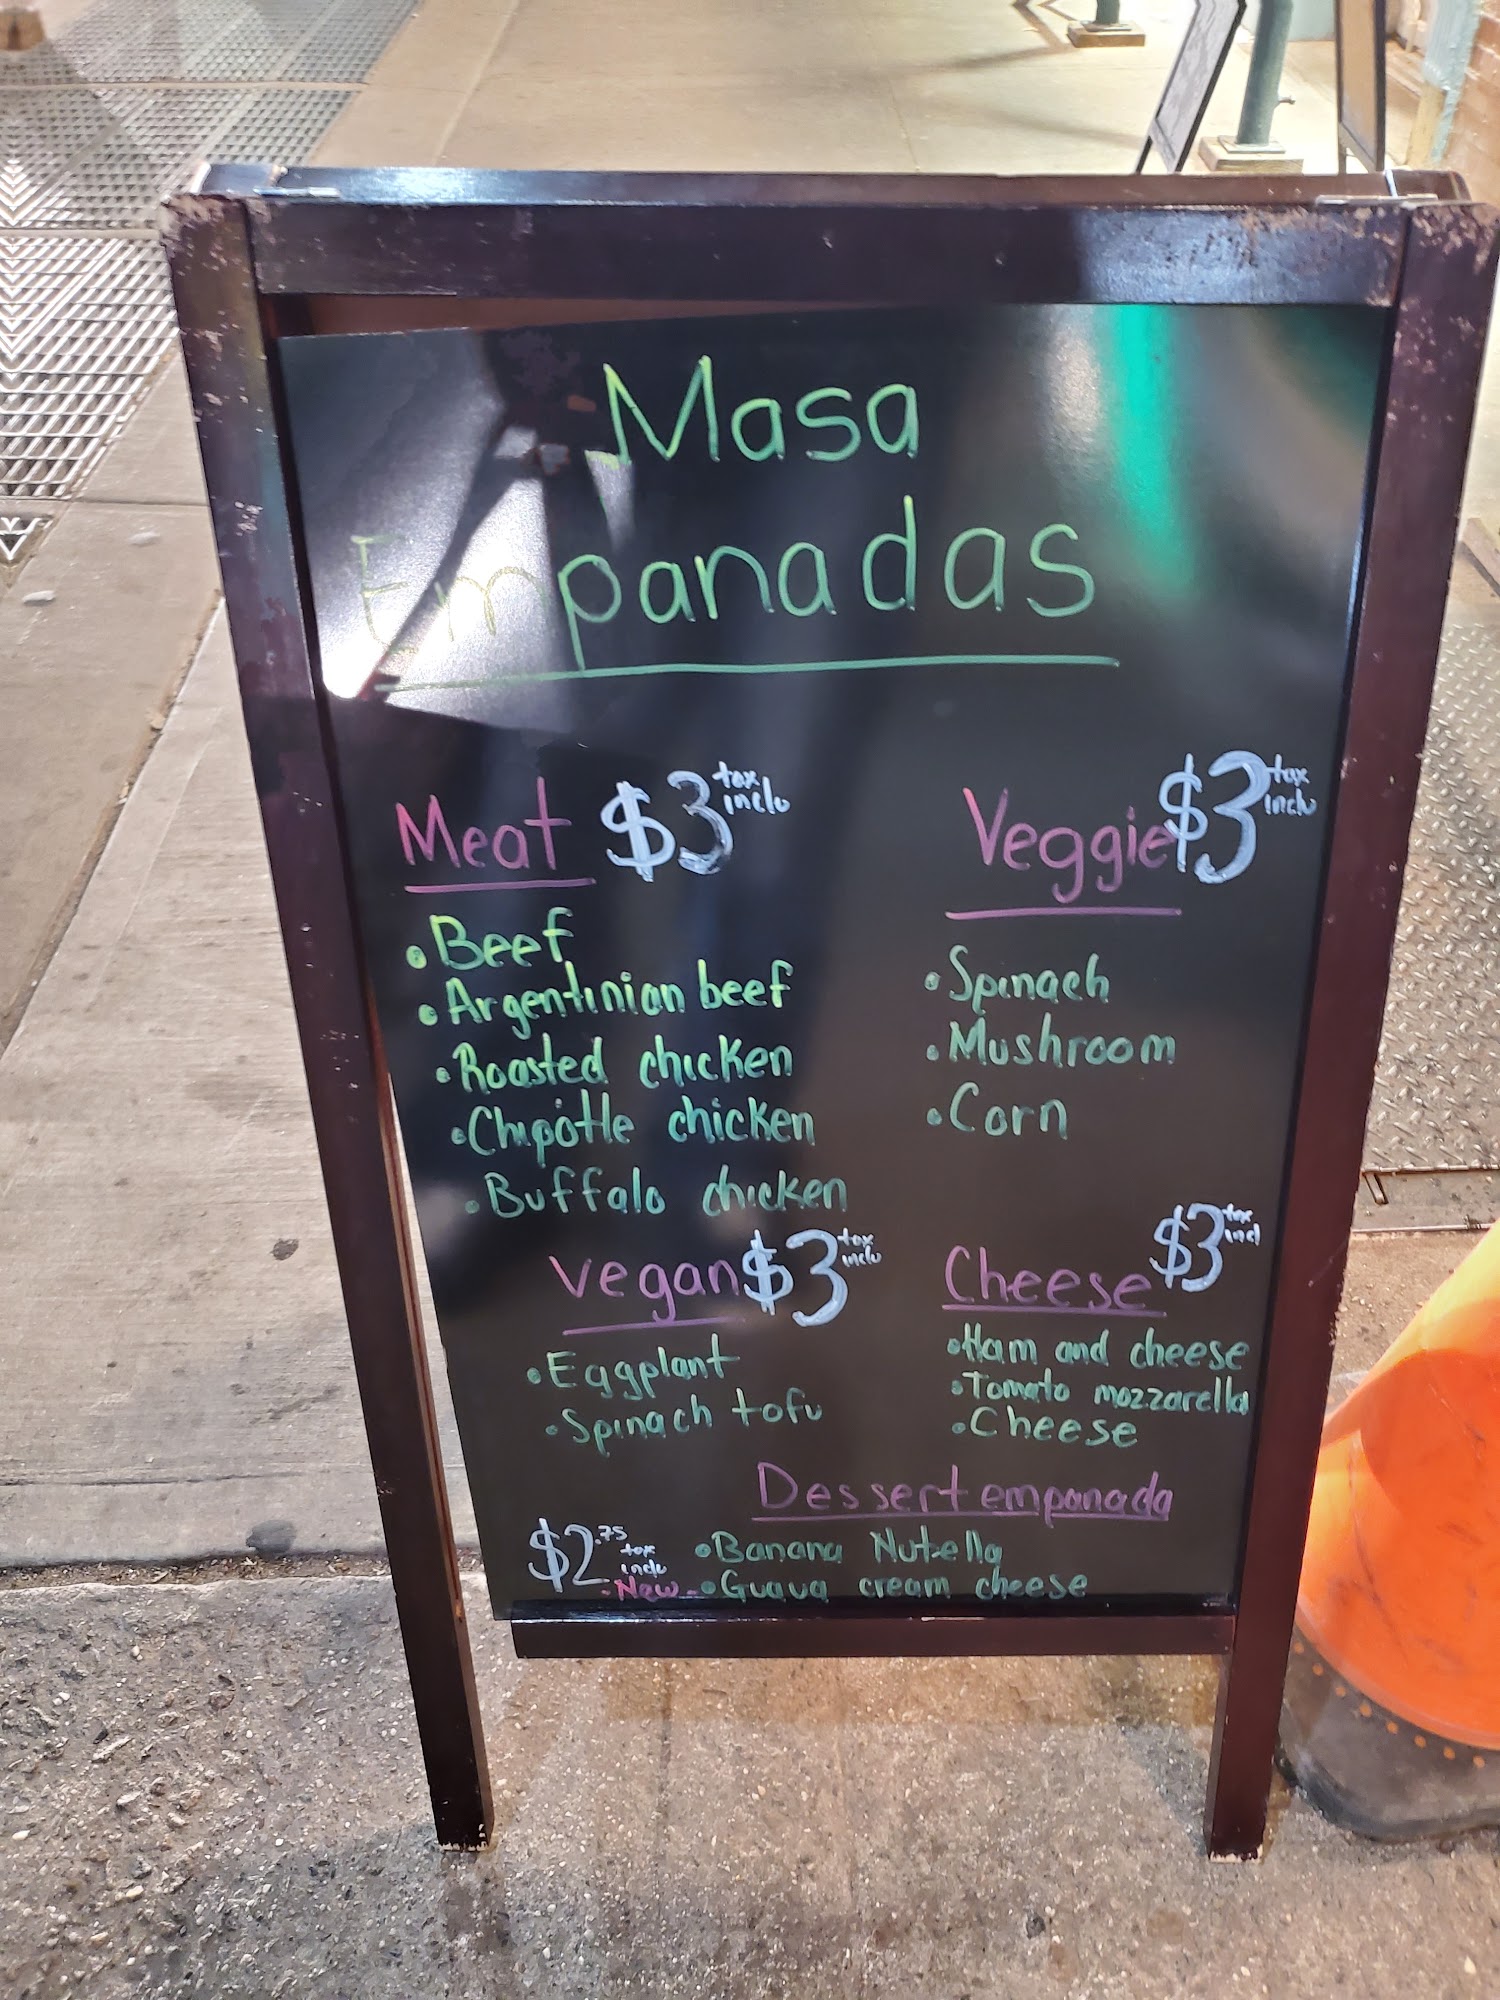 Masa
Empanadas
Meat $3 tax inclu
• Beef
• Argentinian beef
• Roasted chicken
• Chipotle chicken
• Buffalo chicken
Veggie $3 tax inclu
• Spinach
• Mushroom
• Corn
Vegan $3 tax inclu
• Eggplant
• Spinach tofu
Cheese $3 tax incl
• Ham and cheese
• Tomato mozzarella
• Cheese
Dessert empanada
$2.75 tax inclu
• Banana Nutella
- New - • Guava cream cheese